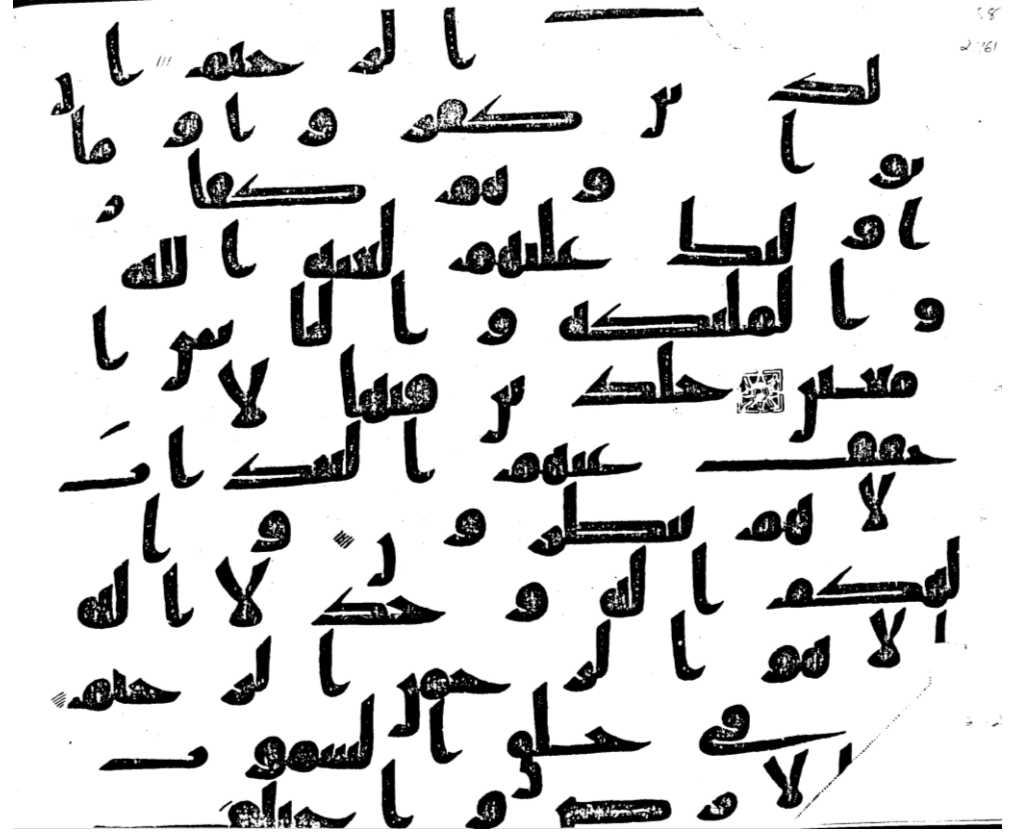 ـب الرحيم ان
لذين كفروا وما
توا وهم كفار
اولئك عليهم لعنه الله
والملئكه والناس ا
جمعين خلدين فيها لا
يخفف عنهم العذاب
لا هم ينظرون وا
لهكم اله وحد لا اله
الا هو الرحمن الرحيم
في خلق السموت
الارض واختلف